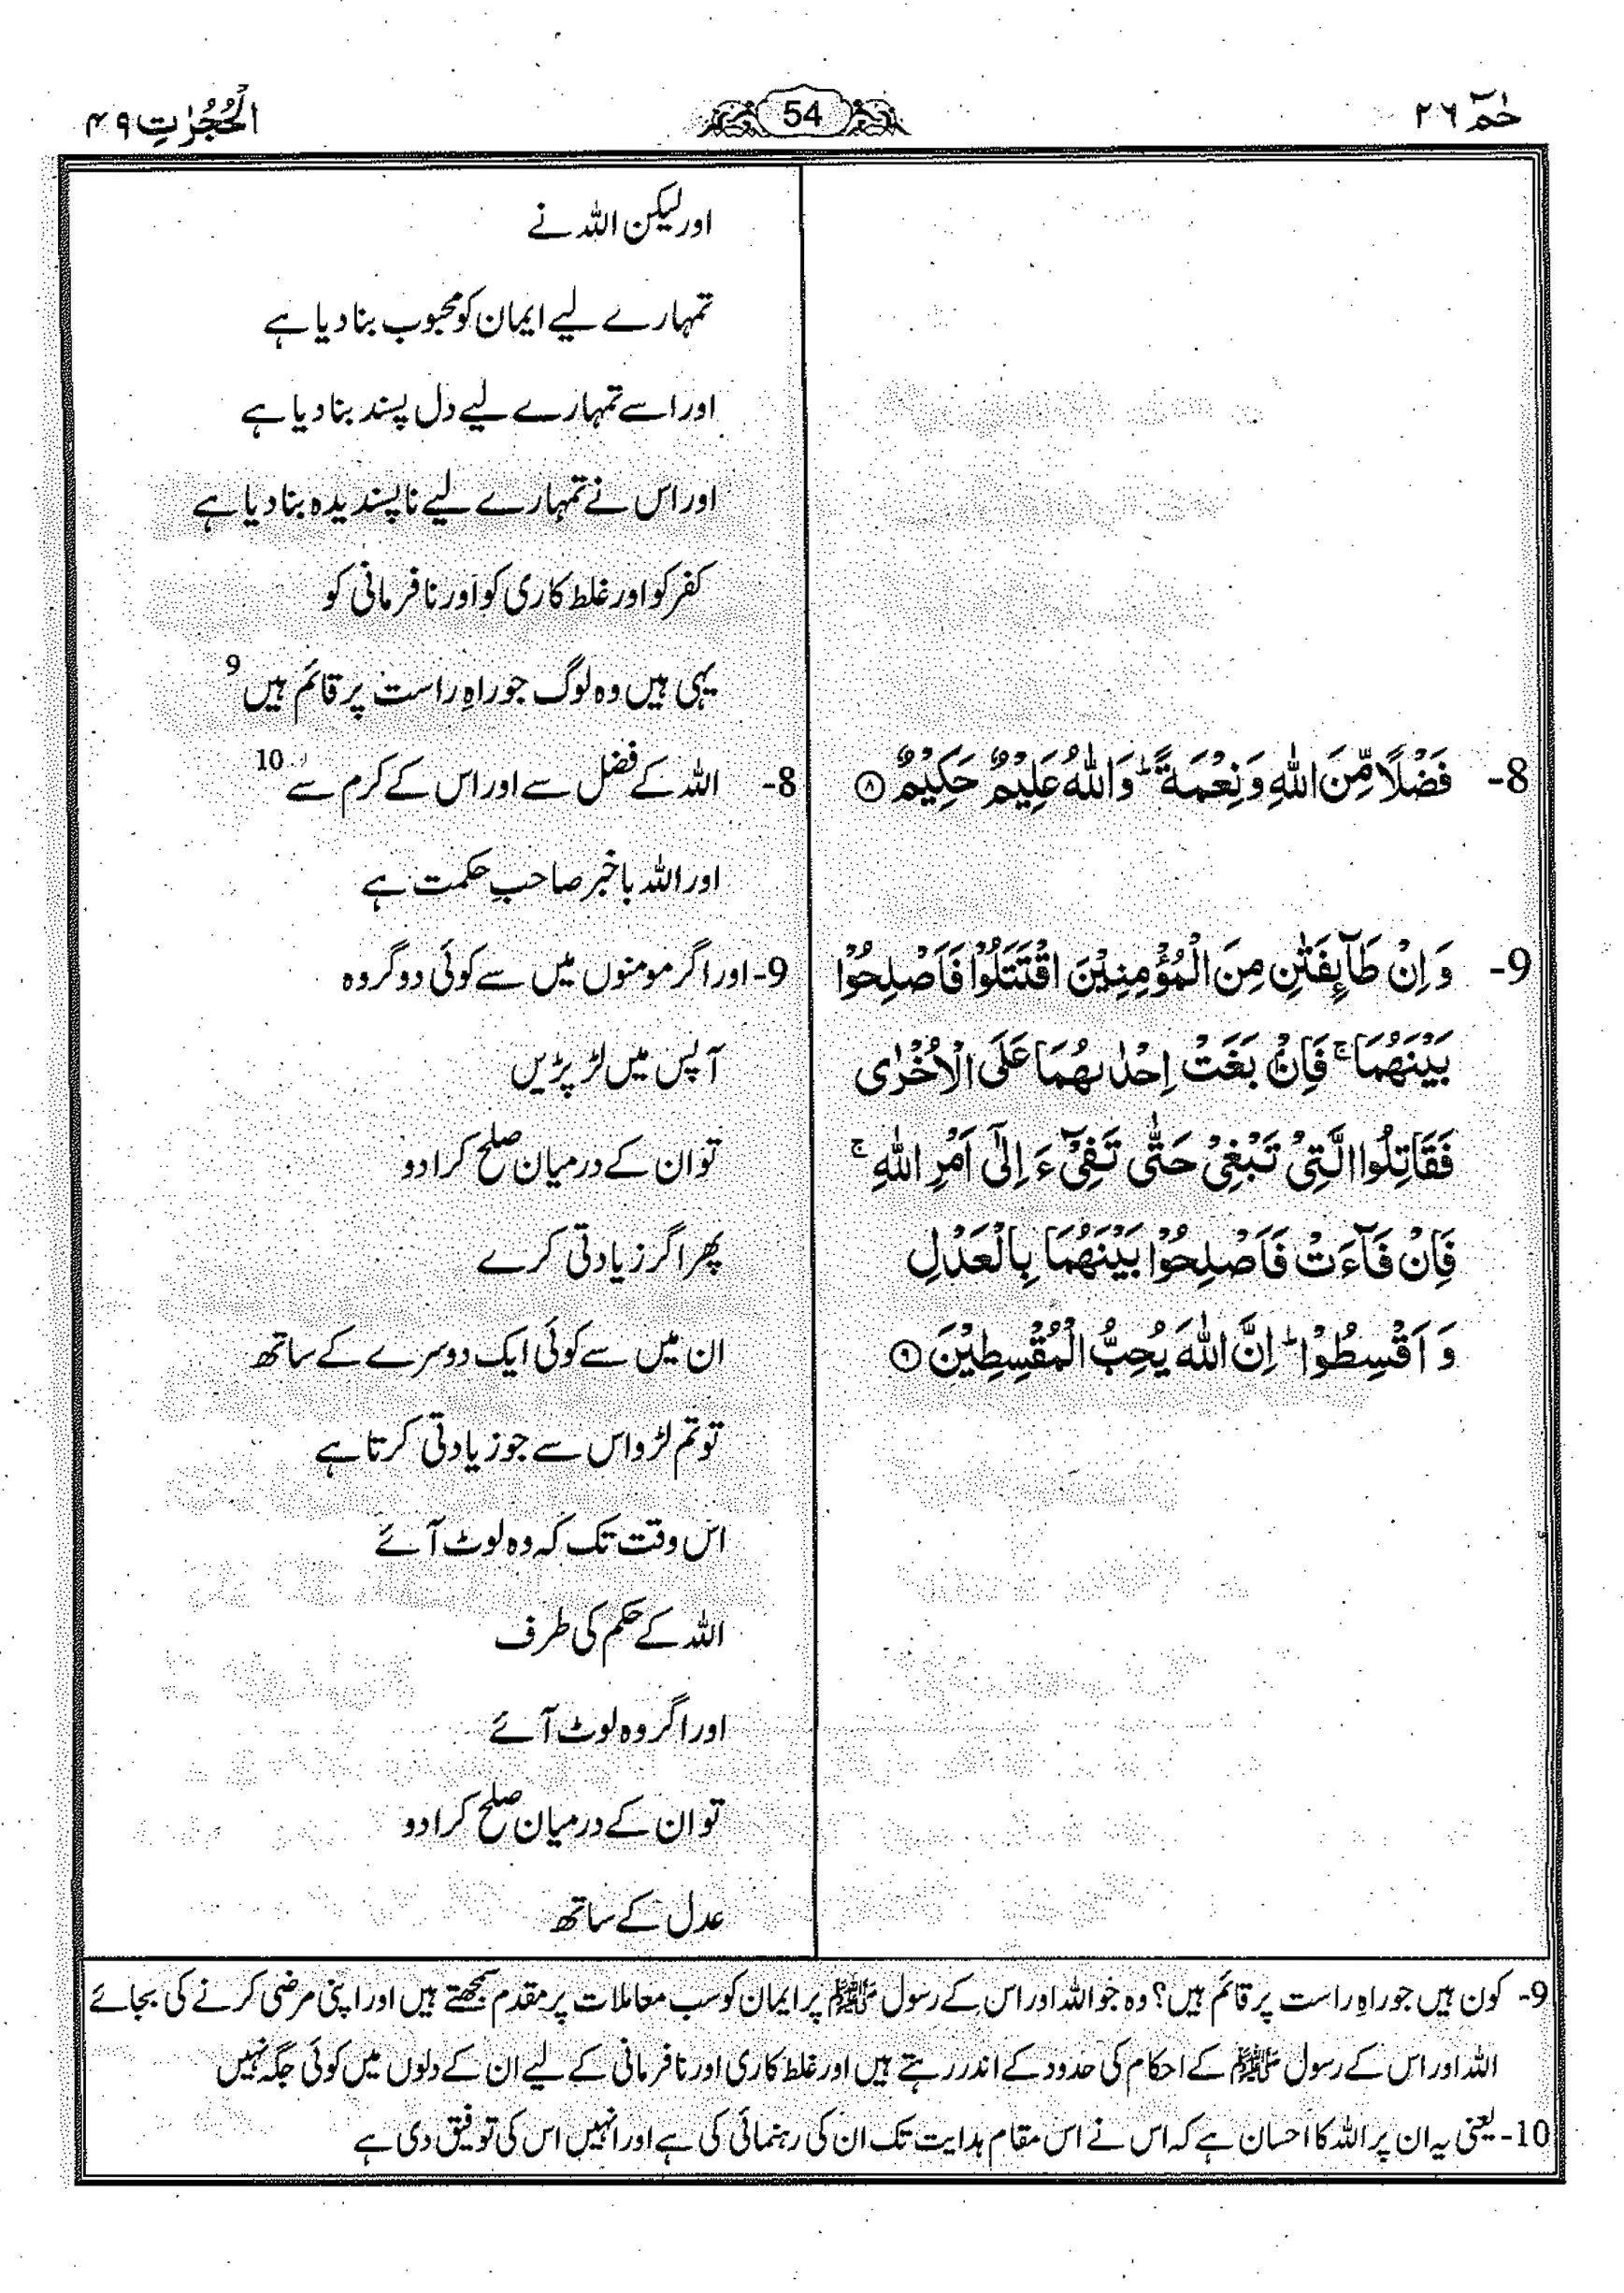 حٰمٓ ۲۶
54
الْحُجُرٰتِ ۴۹
اور لیکن اللہ نے
تمہارے لیے ایمان کو محبوب بنا دیا ہے
اور اسے تمہارے لیے دل پسند بنا دیا ہے
اور اس نے تمہارے لیے ناپسندیدہ بنا دیا ہے
کفر کو اور غلط کاری کو اور نافرمانی کو
یہی ہیں وہ لوگ جو راہِ راست پر قائم ہیں 9
8- فَضْلًا مِّنَ اللّٰهِ وَ نِعْمَةً ؕ وَ اللّٰهُ عَلِیْمٌ حَكِیْمٌ ۝۸
8- اللہ کے فضل سے اور اس کے کرم سے 10
اور اللہ باخبر صاحبِ حکمت ہے
9- وَ اِنْ طَآىِٕفَتٰنِ مِنَ الْمُؤْمِنِیْنَ اقْتَتَلُوْا فَاَصْلِحُوْا
بَیْنَهُمَا ۚ فَاِنْۢ بَغَتْ اِحْدٰىهُمَا عَلَى الْاُخْرٰى
فَقَاتِلُوا الَّتِیْ تَبْغِیْ حَتّٰى تَفِیْٓءَ اِلٰۤى اَمْرِ اللّٰهِ ۚ
فَاِنْ فَآءَتْ فَاَصْلِحُوْا بَیْنَهُمَا بِالْعَدْلِ
وَ اَقْسِطُوْا ؕ اِنَّ اللّٰهَ یُحِبُّ الْمُقْسِطِیْنَ ۝۹
9- اور اگر مومنوں میں سے کوئی دو گروہ
آپس میں لڑ پڑیں
تو ان کے درمیان صلح کرا دو
پھر اگر زیادتی کرے
ان میں سے کوئی ایک دوسرے کے ساتھ
تو تم لڑو اس سے جو زیادتی کرتا ہے
اس وقت تک کہ وہ لوٹ آئے
اللہ کے حکم کی طرف
اور اگر وہ لوٹ آئے
تو ان کے درمیان صلح کرا دو
عدل کے ساتھ
9- کون ہیں جو راہِ راست پر قائم ہیں؟ وہ جو اللہ اور اس کے رسول ﷺ پر ایمان کو سب معاملات پر مقدم سمجھتے ہیں اور اپنی مرضی کرنے کی بجائے
اللہ اور اس کے رسول ﷺ کے احکام کی حدود کے اندر رہتے ہیں اور غلط کاری اور نافرمانی کے لیے ان کے دلوں میں کوئی جگہ نہیں
10- یعنی یہ ان پر اللہ کا احسان ہے کہ اس نے اس مقام ہدایت تک ان کی رہنمائی کی ہے اور انہیں اس کی توفیق دی ہے